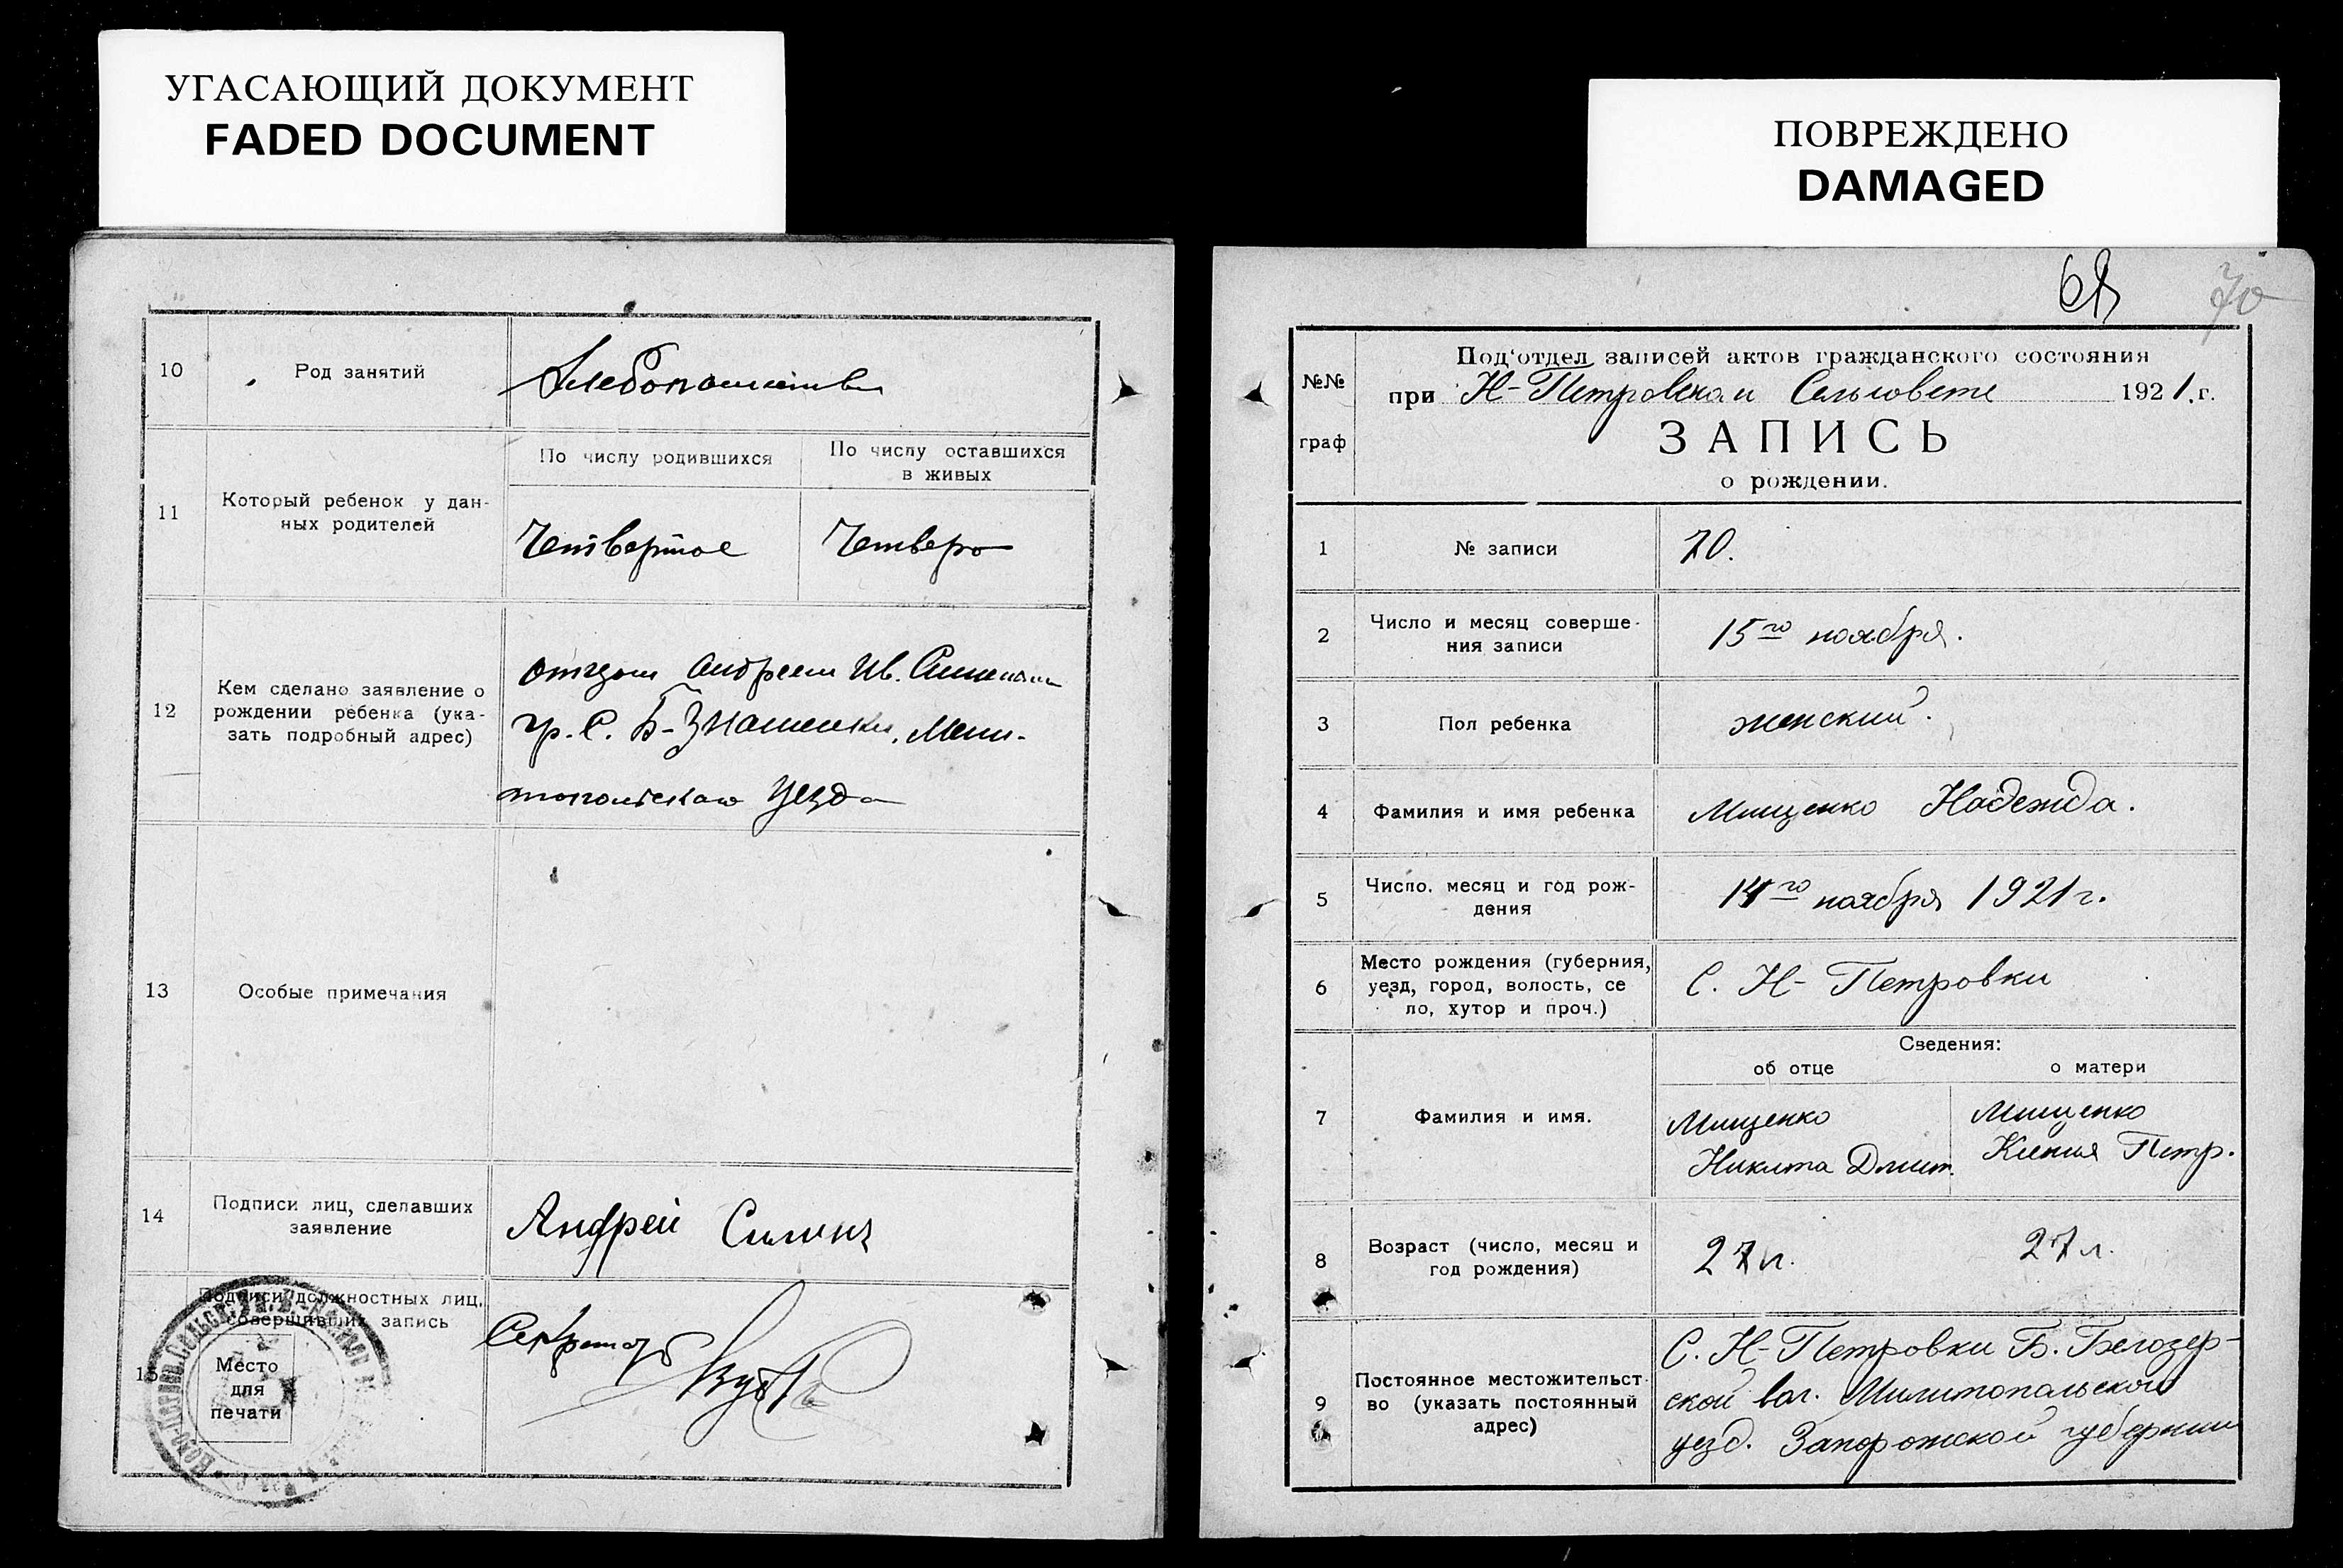 УГАСАЮЩИЙ ДОКУМЕНТ
FADED DOCUMENT
10
Род занятий
Хлебопашество
11
Который ребенок у дан-
ных родителей
По числу родившихся
По числу оставшихся
в живых
Четвертое
Четверо
12
Кем сделано заявление о
рождении ребенка (ука-
зать подробный адрес)
отцом Андреем Ив.
гр. С. Б-Знаменки, Мели-
топольскаго уезда
13
Особые примечания
14
Подписи лиц, сделавших
заявление
Андрей Силин
15
Подписи должностных лиц,
совершивших запись
Место
для
печати
Секретарь
ПОВРЕЖДЕНО
DAMAGED
70
№№
граф
Под'отдел записей актов гражданского состояния
при Н-Петровском Сельсовете 1921.г.
ЗАПИСЬ
о рождении.
1
№ записи
70.
2
Число и месяц соверше-
ния записи
15го ноября.
3
Пол ребенка
женский.
4
Фамилия и имя ребенка
Мищенко Надежда.
5
Число, месяц и год рож-
дения
14го ноября 1921 г.
6
Место рождения (губерния,
уезд, город, волость, се
ло, хутор и проч.)
С. Н-Петровки
Сведения:
об отце
о матери
7
Фамилия и имя.
Мищенко
Никита Дмит.
Мищенко
Ксения Петр.
8
Возраст (число, месяц и
год рождения)
27 л.
27 л.
9
Постоянное местожительст-
во (указать постоянный
адрес)
С. Н-Петровки Б. Белозер-
ской вол. Милитопольской
уезд. Запорожской губернии